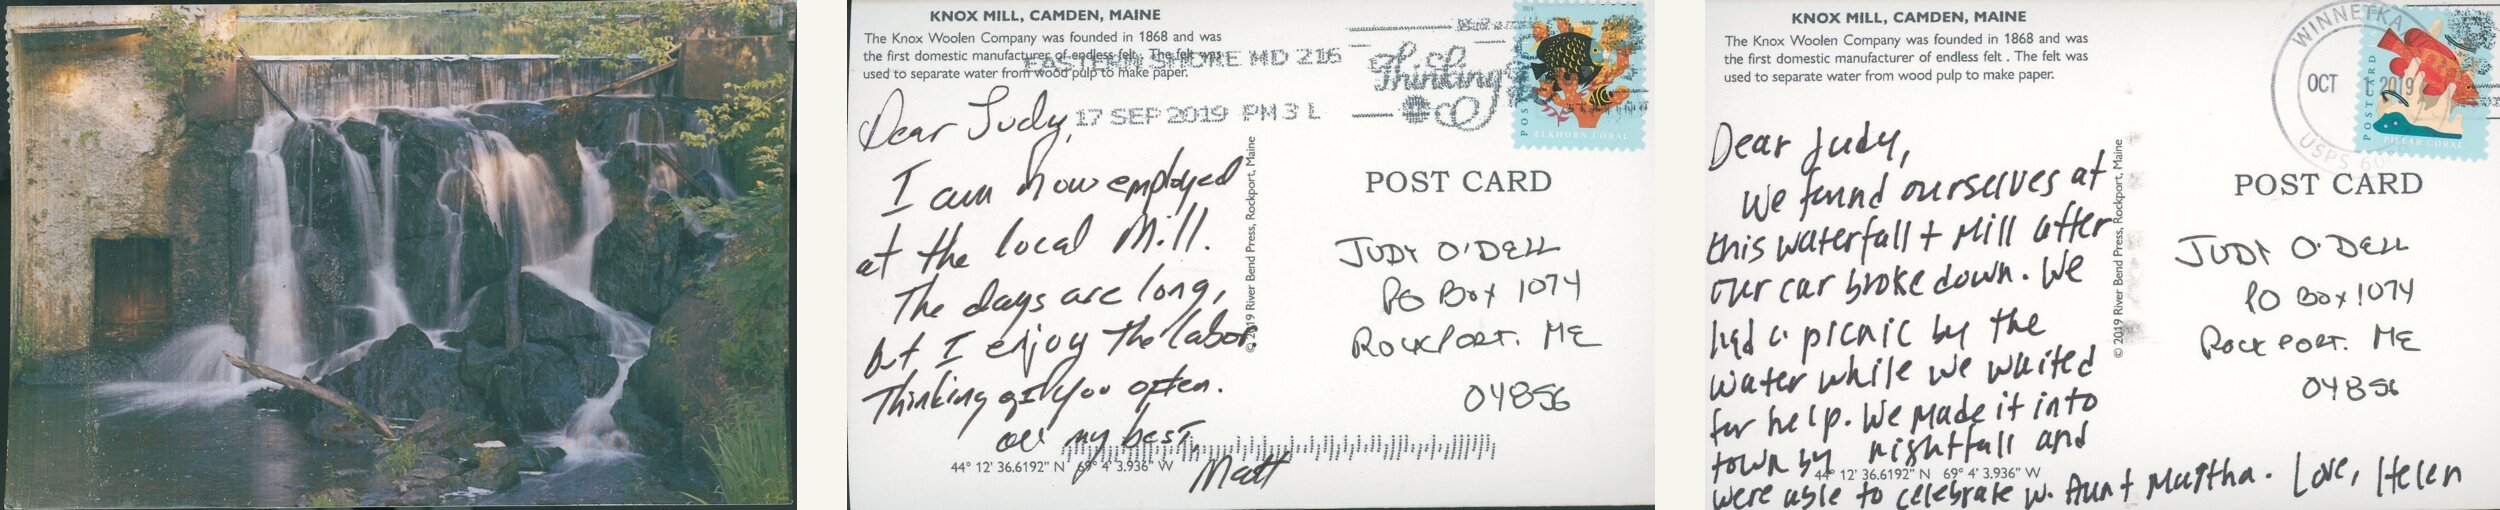 KNOX MILL, CAMDEN, MAINE
The Knox Woolen Company was founded in 1868 and was
the first domestic manufacturer of endless felt . The felt was
used to separate water from wood pulp to make paper.
EASTERN SHORE MD 216
17 SEP 2019 PM 3 L
Thinking
POSTCARD
ELKHORN CORAL
Dear Judy,
I am now employed
at the local Mill.
The days are long,
but I enjoy the labor.
Thinking of you often.
all my best,
Matt
44° 12' 36.6192" N 69° 4' 3.936" W
© 2019 River Bend Press, Rockport, Maine
POST CARD
JUDY O'DELL
PO BOX 1074
ROCKPORT. ME
04856
KNOX MILL, CAMDEN, MAINE
The Knox Woolen Company was founded in 1868 and was
the first domestic manufacturer of endless felt . The felt was
used to separate water from wood pulp to make paper.
WINNETKA
OCT 2019
USPS
POSTCARD
PILLAR CORAL
Dear Judy,
We found ourselves at
this waterfall + Mill after
our car broke down. We
had a picnic by the
water while we waited
for help. We made it into
town by nightfall and
were able to celebrate w. Aunt Martha. Love, Helen
44° 12' 36.6192" N 69° 4' 3.936" W
© 2019 River Bend Press, Rockport, Maine
POST CARD
JUDY O'DELL
PO BOX 1074
ROCKPORT. ME
04856